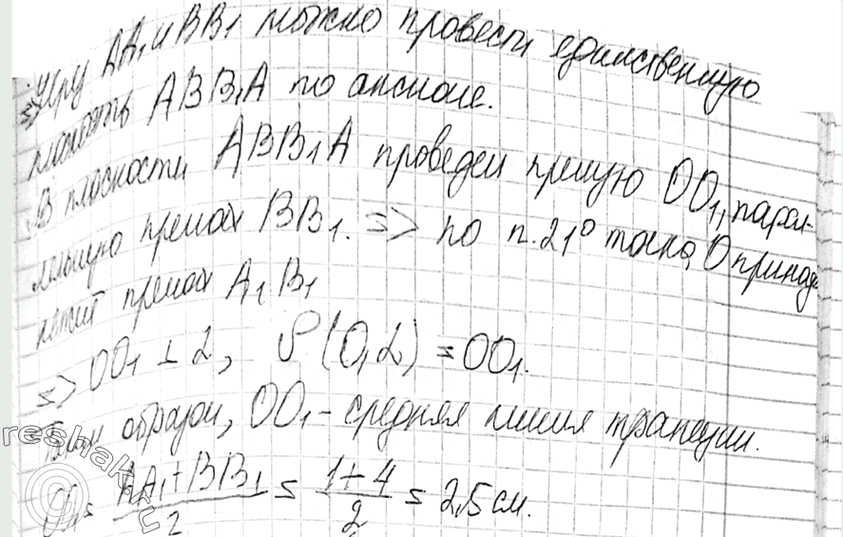 => Чрз AA₁ и BB₁ можно провести единственную
плоскость ABB₁A по аксиоме.
В плоскости ABB₁A проведем прямую OO₁, парал-
лельную прямой BB₁. => по п.21° точка O принад-
лежит прямой A₁B₁
=> OO₁ ⊥ α, ρ(O,α) = OO₁.
Таким образом, OO₁ - средняя линия трапеции.
= (AA₁+BB₁)/2 = (1+4)/2 = 2,5 см.
reshak.ru